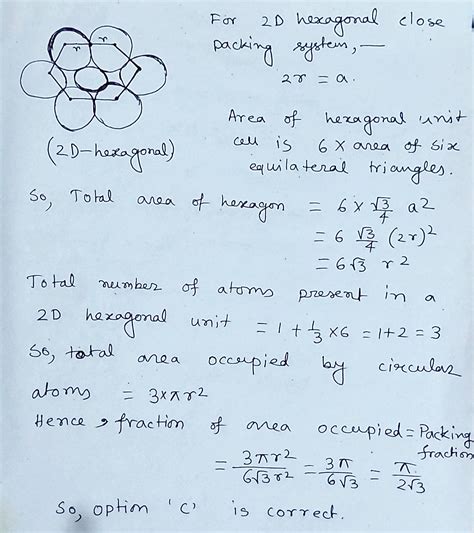 For 2D hexagonal close
packing system, —
2r = a.
r r
(2D-hexagonal)
Area of hexagonal unit
cell is 6 × area of six
equilateral triangles.
So, Total area of hexagon = 6 × √3/4 a2
= 6 √3/4 (2r)²
= 6√3 r2
Total number of atoms present in a
2D hexagonal unit = 1 + 1/3 × 6 = 1+2 = 3
So, total area occupied by circular
atoms = 3×πr²
Hence, fraction of area occupied = Packing
fraction
= 3πr²/6√3 r² = 3π/6√3 = π/2√3
So, option 'C' is correct.